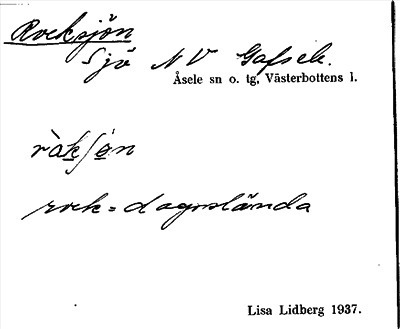 Rocksjön
Sjö NV Gafsele.
Åsele sn o. tg, Västerbottens l.
ràk̲ʃø̲̀n
rock = dagslända
Lisa Lidberg 1937.